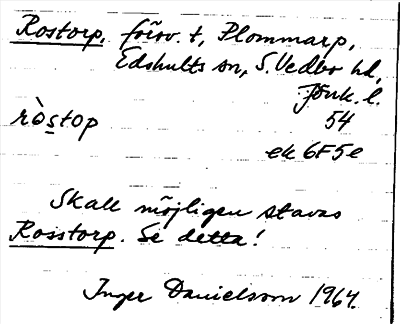 Rostorp, försv. t, Plommarp,
Edshults sn, S. Vedbo hd,
Jönk. l.
ròstop
54
ek 6F5e
Skall möjligen stavas
Rosstorp. Se detta!
Inger Danielsson 1964.